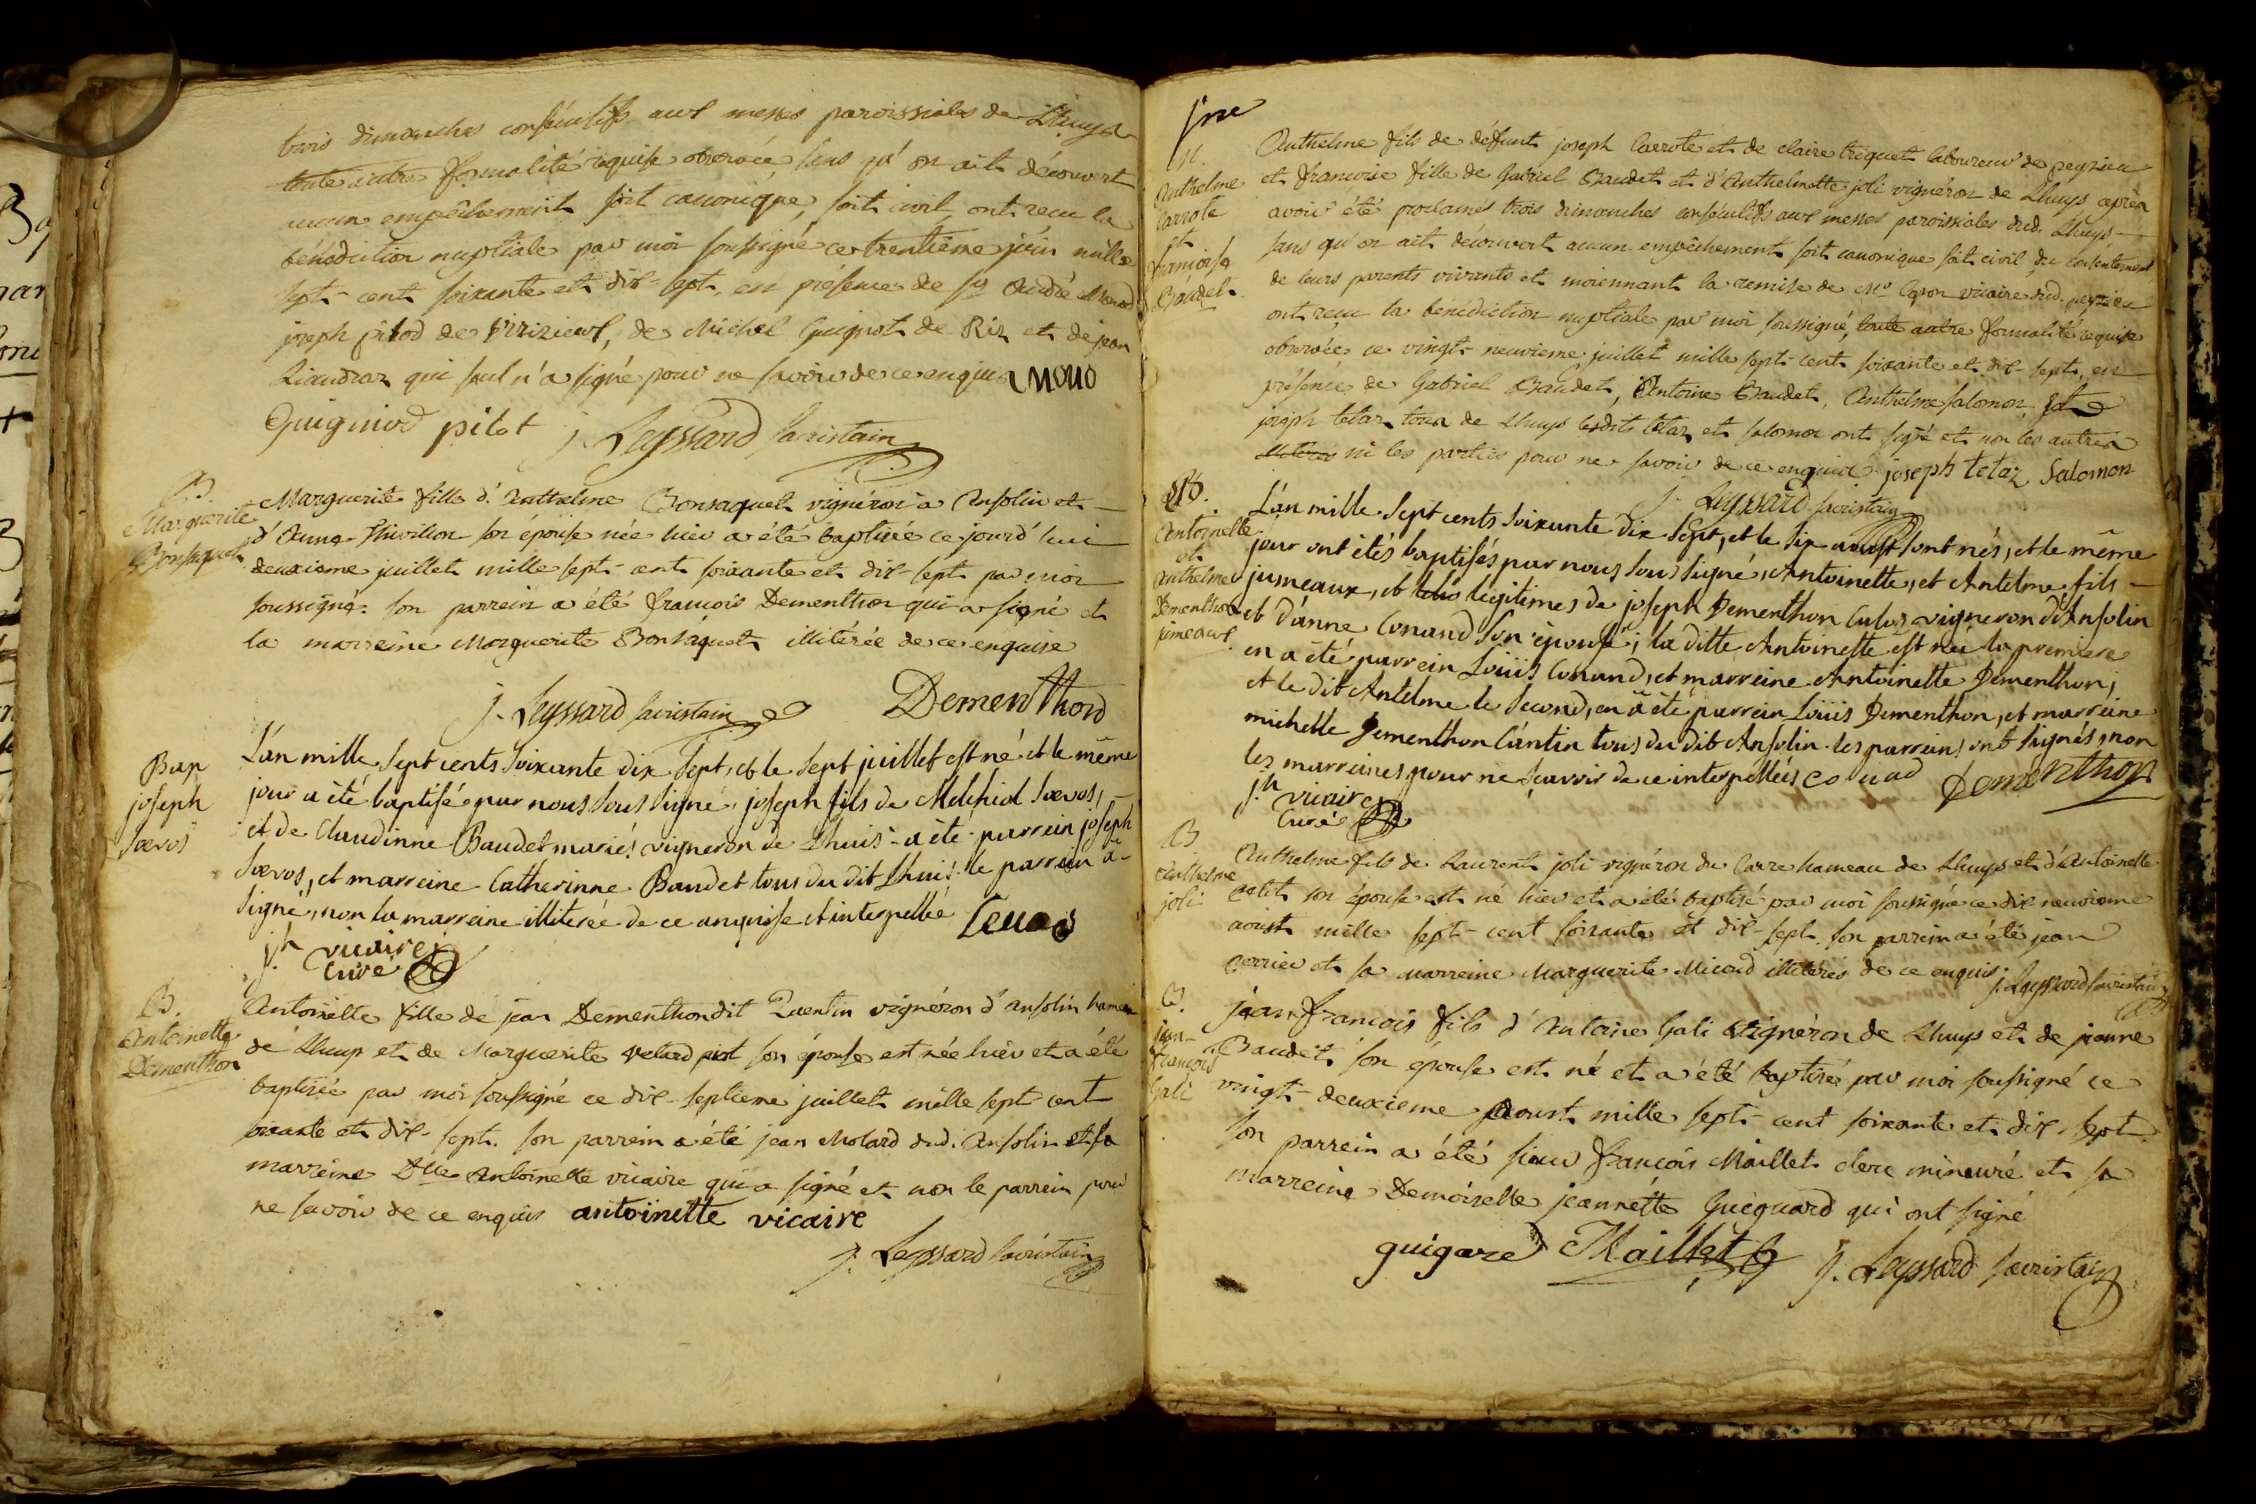 trois dimanches consécutifs aux messes paroissiales de Lhuys
toute autre formalité requise observée, sans qu'on ait découvert
aucun empêchement soit canonique, soit civil, ont reçu la
bénédiction nuptiale par moi soussigné ce trentième juin mille
sept-cent soixante et dix-sept, en présence de sr André
joseph pitod de, de Michel Guignot de Rix et de jean
qui seul n'a signé pour ne savoir de ce enquis
Guigniod pilot j. Leyssard sacristain
B.
Marguerite
Bonsaquet
Marguerite fille d'Anthelme Bonsaquet vignéron à Ansolin et
d'Anne Thivollon son épouse née hier a été baptisée ce jourd'hui
deuxieme juillet mille sept-cent soixante et dix-sept par moi
soussigné. son parrein a été françois Dementhon qui a signé et
la marreine Marguerite Bonsaquet illitérée de ce enquise
j. Leyssard sacristain Dementhond
Bap
joseph
Soevos
L'an mille sept cents soixante dix sept, et le sept juillet est né et le même
jour a été baptisé par nous sous signé, joseph fils de Melchiol Soevos,
et de Claudinne Baudet mariés vigneron de Lhuis. a été parrein joseph
Soevos, et marreine Catherinne Baudet tous du dit Lhuis. le parrein a
signé, non la marreine illiterée de ce anquise et interpellée
jh vicaire
Curé
B.
Antoinette
Dementhon
Antoinette fille de jean Dementhon dit Quentin vignéron d'ansolin hameau
de Lhuys et de Marguerite Velard son épouse est née hier et a été
baptisée par moi soussigné ce dix-septieme juillet mille sept cent
soixante et dix-sept. son parrein a été jean Molard dud. Ansolin et sa
marreine Dlle Antoinette vicaire qui a signé et non le parrein pour
ne savoir de ce enquis antoinette vicaire
j. Leyssard sacristain
M.
Anthelme
Carrote
et
francoise
Baudet
Anthelme fils de défunt joseph Carrote et de claire triquet laboureur de peyzieu
et francoise fille de Gabriel Baudet et d'Anthelmette joli vignéron de Lhuys après
avoir été proclamés trois dimanches consécutifs aux messes paroissiales dud. Lhuys
sans qu'on ait découvert aucun empêchement soit canonique soit civil, du consentement
de leurs parents vivants et moiennant la remise de Mr Capon vicaire dud. peyzieu
ont reçu la bénédiction nuptiale par moi soussigné, toute autre formalité requise
observée ce vingt-neuvieme juillet mille sept-cent soixante et dix-sept, en
présence de Gabriel Baudet, Antoine Baudet, Anthelme Salomon, et
joseph tetaz tous de Lhuys lesdits tetaz et Salomon ont signé et non les autres
ni les parties pour ne savoir de ce enquis joseph tetaz Salomon
j. Leyssard sacristain
Antoinette
et
Anthelme
Dementhon
jumeaux
L'an mille sept cents soixante dix sept, et le six aoust sont nés, et le même
jour ont étés baptisés par nous sous signé, Antoinette, et Antelme, fils
jumeaux, et légitimes de joseph Dementhon Culoz vigneron d'Ansolin
et d'anne Conand son épouse; la ditte Antoinette est née la premiere
en a été parrein Loüis Conand, et marreine Antoinette Dementhon;
et le dit Antelme le second, en a été parrein Loüis Dementhon, et marreine
michelle Dementhon Cántin tous du dit Ansolin. les parreins ont signés, non
les marreines pour ne sçavoir de ce interpellées conad Dementhon
jh vicaire
Curé
B
Anthelme
joli
Anthelme fils de Laurent joli vignéron du Carre hameau de Lhuys et d'Antoinette
petit son épouse est né hier et a été baptisé par moi soussigné ce dix neuvieme
aoust mille sept-cent soixante et dix-sept. son parrein a été jean
perrier et sa marreine Marguerite Micoud illitérés de ce enquis j. Leyssard sacristain
B.
jean-
françois
Gali
jean françois fils d'Antoine Gali vignéron de Lhuys et de jeanne
Baudet son épouse est né et a été baptisé par moi soussigné ce
vingt-deuxieme aoust mille sept-cent soixante et dix-sept.
son parrein a été sieur françois Maillet clerc minouré et sa
marreine Demoiselle jeannette Guéguard qui ont signé
guigard Maillet j. Leyssard sacristain